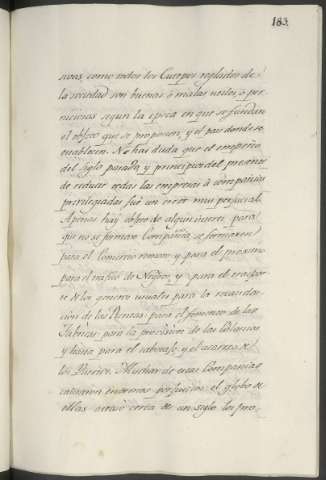 183.
sivas, como todos los Cuerpos reglados de
la sociedad son buenas, ó malas, utiles, ó per-
niciosas segun la epoca en que se fundan
el objeto que se proponen, y el pais donde se
establecen. No hay duda que el empeño
del siglo pasado, y principios del presente
de reducir todas las empresas á compañias
privilegiadas fué un error muy perjudicial.
Apenas hay objeto de alguna suerte para
que no se formase Compañia, se formaron
para el Comercio remoto y para el proximo
para el trafico de Negros, y para el traspor-
te de los generos usuales para la recauda-
cion de las Rentas: para el fomento de las
Fabricas: para la provision de las Colonias
y hasta para el tabonage y el acarreo de
los Puertos. Muchas de estas Compañias
causaron enormes perjuicios el globo de
ellas atrasó cerca de un siglo los pro-